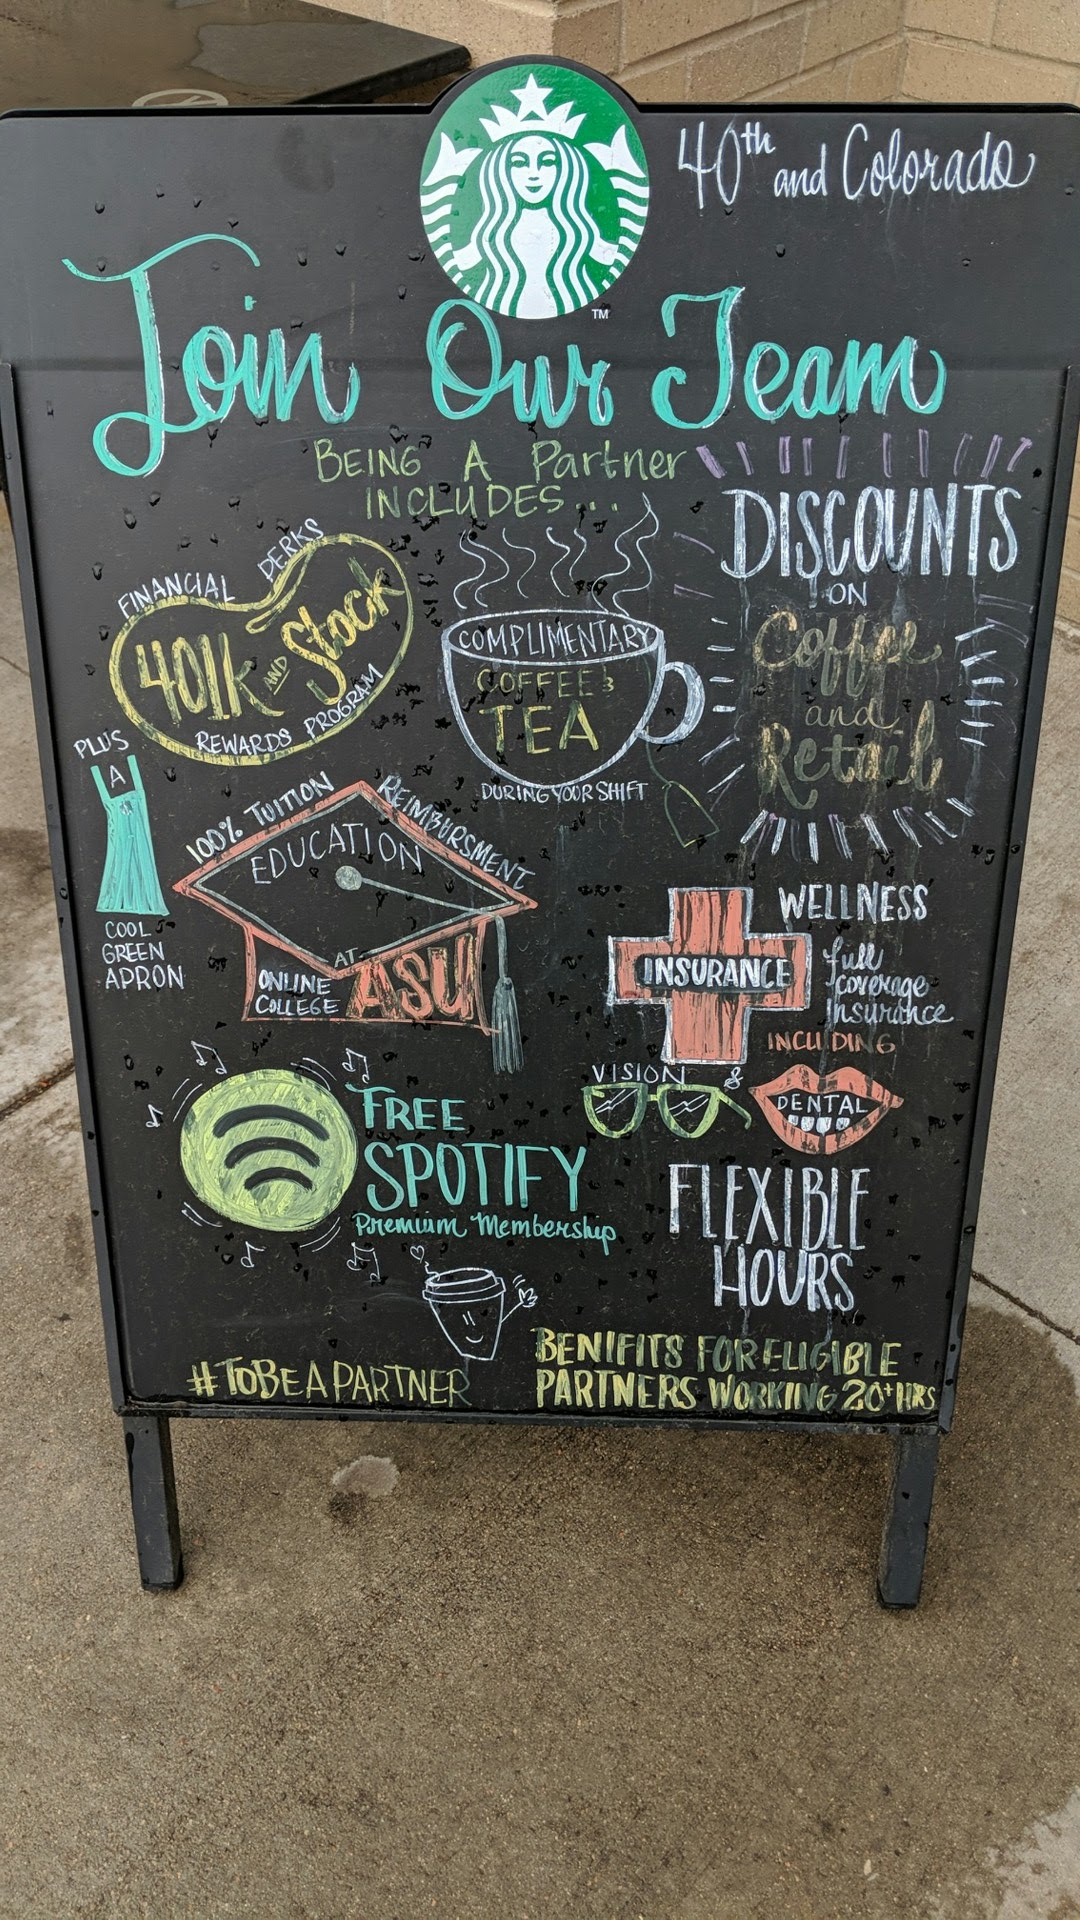 40th and Colorado
TM
Join Our Team
BEING A Partner
INCLUDES...
FINANCIAL PERKS
401K AND Stock
REWARDS PROGRAM
COMPLIMENTARY
COFFEE &
TEA
DURING YOUR SHIFT
DISCOUNTS
ON
Coffee
and
Retail
PLUS
A
COOL
GREEN
APRON
100% TUITION REIMBURSMENT
EDUCATION
AT
ONLINE
COLLEGE
ASU
WELLNESS
INSURANCE
full
coverage
Insurance
INCLUDING
VISION &
DENTAL
FREE
SPOTIFY
Premium Membership
FLEXIBLE
HOURS
#TOBEAPARTNER
BENIFITS FOR ELIGIBLE
PARTNERS WORKING 20+ HRS